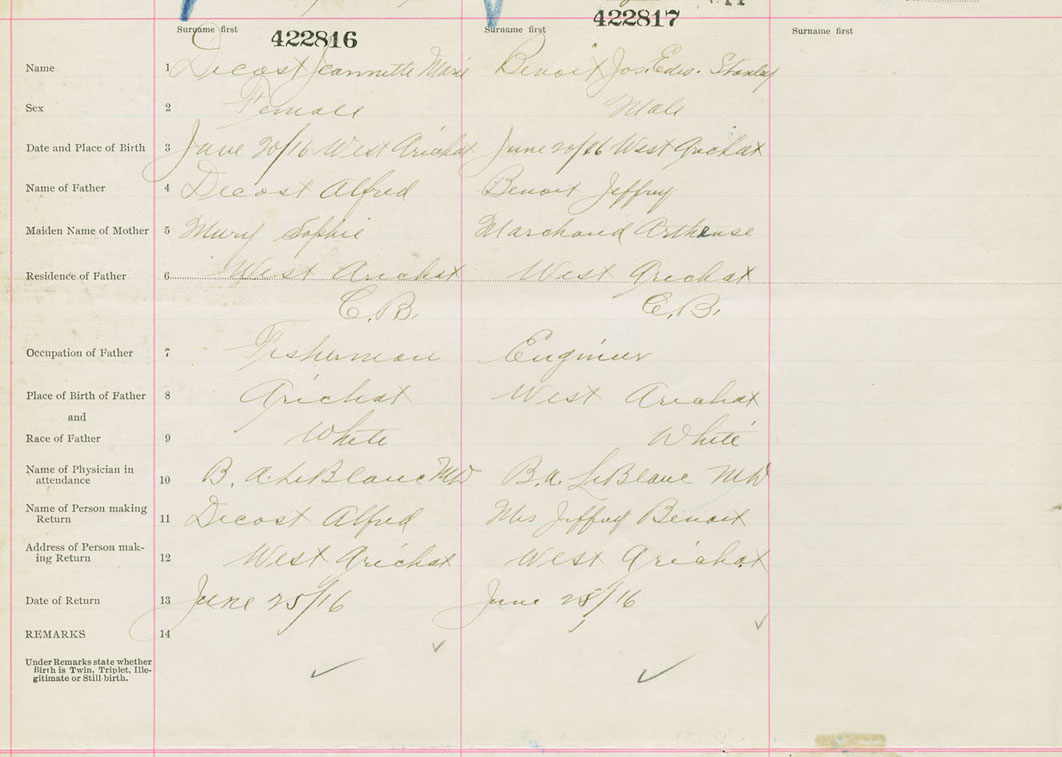 Surname first 422816 Surname first 422817 Surname first
Name 1 Decost Jeannette Marie Benoit Jos. Edw. Stanley
Sex 2 Female Male
Date and Place of Birth 3 June 20/16 West Arichat June 20/16 West Arichat
Name of Father 4 Decost Alfred Benoit Jeffrey
Maiden Name of Mother 5 Mury Sophie Marchand Arthense
Residence of Father 6 West Arichat West Arichat
C.B. C.B.
Occupation of Father 7 Fisherman Engineer
Place of Birth of Father 8 Arichat West Arichat
and
Race of Father 9 White White
Name of Physician in
attendance 10 B. A. LeBlanc MD B.A. LeBlanc MD
Name of Person making
Return 11 Decost Alfred Mrs Jeffrey Benoit
Address of Person mak-
ing Return 12 West Arichat West Arichat
Date of Return 13 June 25/16 June 28/16
REMARKS 14
Under Remarks state whether
Birth is Twin, Triplet, Ille-
gitimate or Still birth.